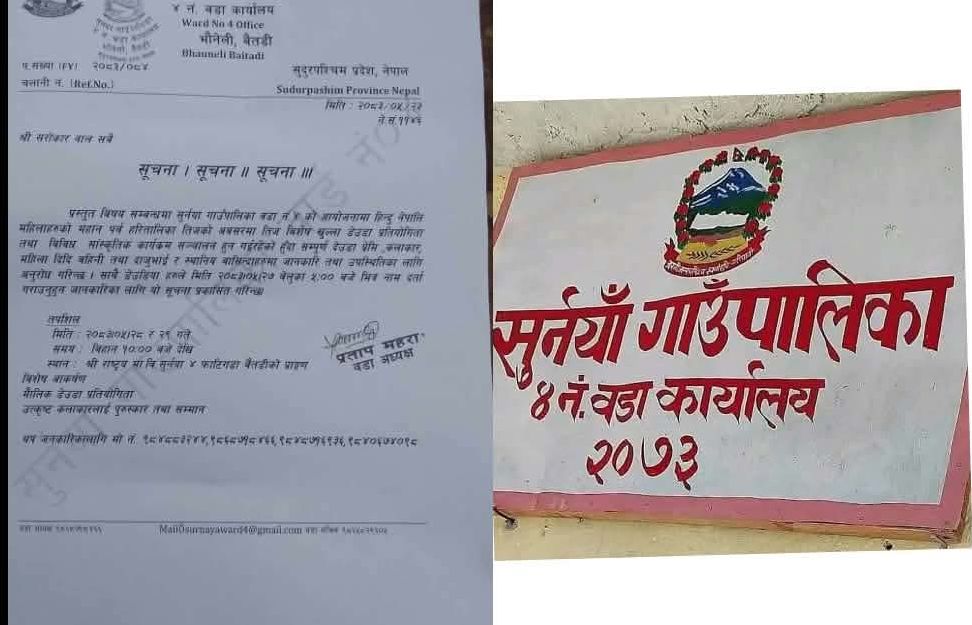 ४ नं. वडा कार्यालय
Ward No 4 Office
भौनेली, बैतडी
Bhauneli Baitadi
प.संख्या (FY) २०८३/०८४
चलानी नं. (Ref.No.)
सुदुरपश्चिम प्रदेश, नेपाल
Sudurpashim Province Nepal
मिति : २०८३/०५/२३
ने.स.११४६
श्री सरोकार वाल सबै
सूचना । सूचना ॥ सूचना ॥।
प्रस्तुत विषय सम्बन्धमा सुर्नया गाउँपालिका वडा नं ४ को आयोजनामा हिन्दु नेपालि
महिलाहरुको महान पर्व हरितालिका तिजको अवसरमा तिज विशेष खुल्ला डेउडा प्रतियोगिता
तथा विविध सांस्कृतिक कार्यक्रम सञ्चालन हुन गईरहेको हुँदा सम्पुर्ण देउडा प्रेमि ,कलाकार,
महिला दिदि बहिनी तथा दाजुभाई र स्थानिय बासिन्दाहरुमा जानकारि तथा उपस्थितिका लागि
अनुरोध गरिन्छ । साथै डेउडिया हरुले मिति २०८३/०५/२७ बेलुका ५:०० बजे भित्र नाम दर्ता
गराउनुहुन जानकारिका लागि यो सूचना प्रकासित गरिन्छ।
तपशिल
मिति : २०८३/०५/२८ र २९ गते
समय : बिहान १०:०० बजे देखि
स्थान : श्री राष्ट्रिय मा वि सुर्नया ४ फाटिगडा बैतडीको प्राङ्गण
विशेष आकर्षण
मौलिक डेउडा प्रतियोगिता
उत्कृष्ट कलाकारलाई पुरुस्कार तथा सम्मान
प्रताप महरा
वडा अध्यक्ष
थप जानकारिकालागि मो नं.
Mail0surnayaward4@gmail.com
सुर्नयाँ गाउँपालिका
४ नं. वडा कार्यालय
२०७३